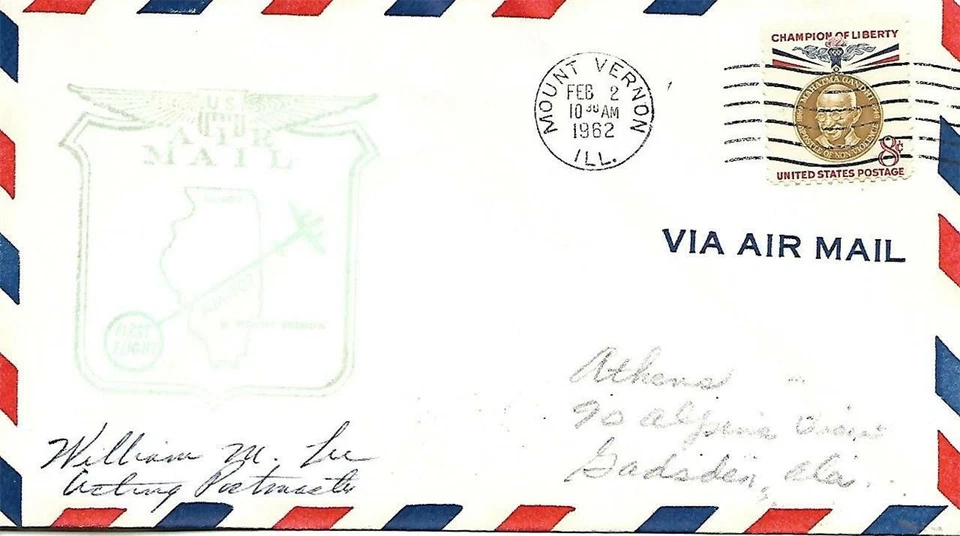 U S
AIR
MAIL
FIRST
FLIGHT
MOUNT VERNON
MOUNT VERNON
FEB 2
10 30 AM
1962
ILL.
CHAMPION OF LIBERTY
MAHATMA GANDHI
APOSTLE OF NON-VIOLENCE
8¢
UNITED STATES POSTAGE
VIA AIR MAIL
Athens
Gadsden, Ala.
William M. Lee
Acting Postmaster